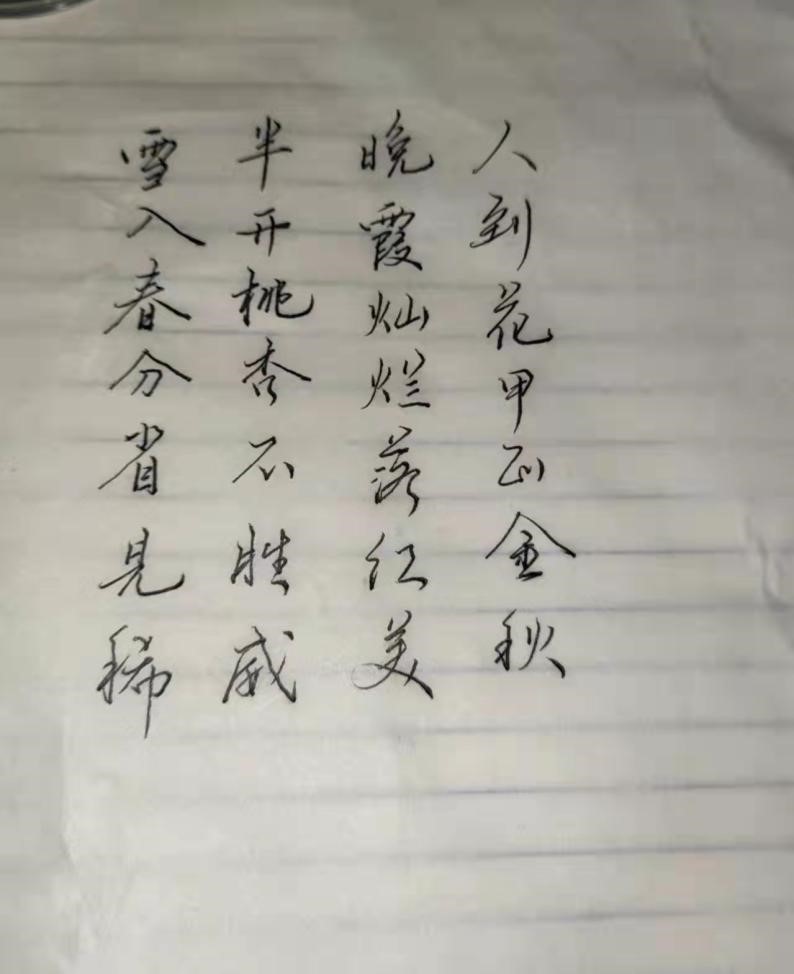 人到花甲正金秋
晚霞灿烂落红美
半开桃杏不胜威
雪入春分省见稀